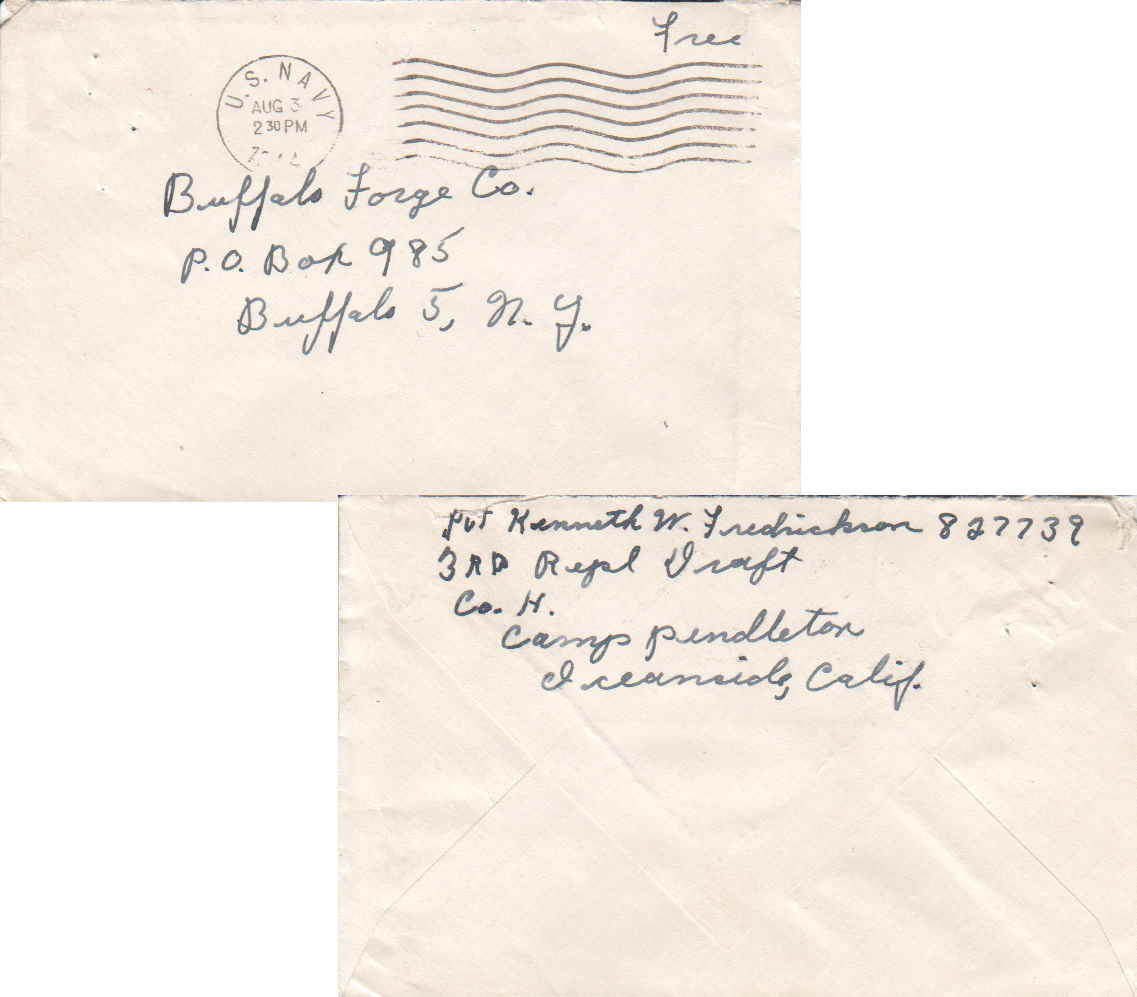 Free
U.S. NAVY
AUG 3
2 30 PM
Buffalo Forge Co.
P.O. Box 985
Buffalo 5, N.Y.
Pvt Kenneth W. Fredrickson 827739
3RD Repl Draft
Co. H.
Camp Pendleton
Oceanside, Calif.